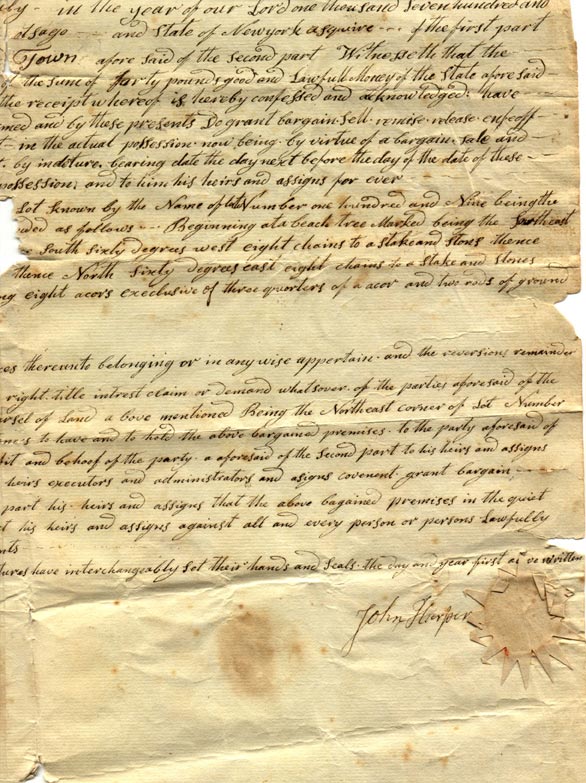 in the year of our Lord one thousand Seven hundred and
tsago - and State of New york asquire - of the first part
Town afore said of the second part Witnesseth that the
of the sum of forty pounds good and Lawfull Money of the State afore said -
the receipt whereof is hereby confessed and acknowledged: have -
med and by these presents Do grant bargain. Sell. remise. release. enfeoff
- in the actual possession now being. by virtue of a bargain. sale and -
by indeture, bearing date the day next before the day of the date of these -
possession; and to him his heirs and assigns for ever
Lot known by the Name of Lot Number one hundred and Nine being the
ded as follows - Beginning at a beach tree Marked being the Southeast
South Sixty Degrees west eight chains to a stake and stons thence
thence North Sixty Degrees east eight chains to a Stake and Stones
ng eight acors execlusive of three quarters of a acor and two rods of ground
es thereunto belonging or in any wise appertain. and the reversions remainder
right. title intrest claim or demand whatsover. of the parties aforesaid of the
arsel of Land a bove mentioned Being the Northeast corner of Lot Number
to have and to hold the above bargained premises. to the party aforesaid of
fit and behoof of the party. a aforesaid of the Second part to his heirs and assigns
heirs executors and administrators and asigns covenent. grant bargain
part his heirs and assigns that the above bagained premises in the quiet
his heirs and assigns against all and every person or persons Lawfully
nts
tures have interchangeably Set their hands and Seals. the day and year first a ve written
John Herper